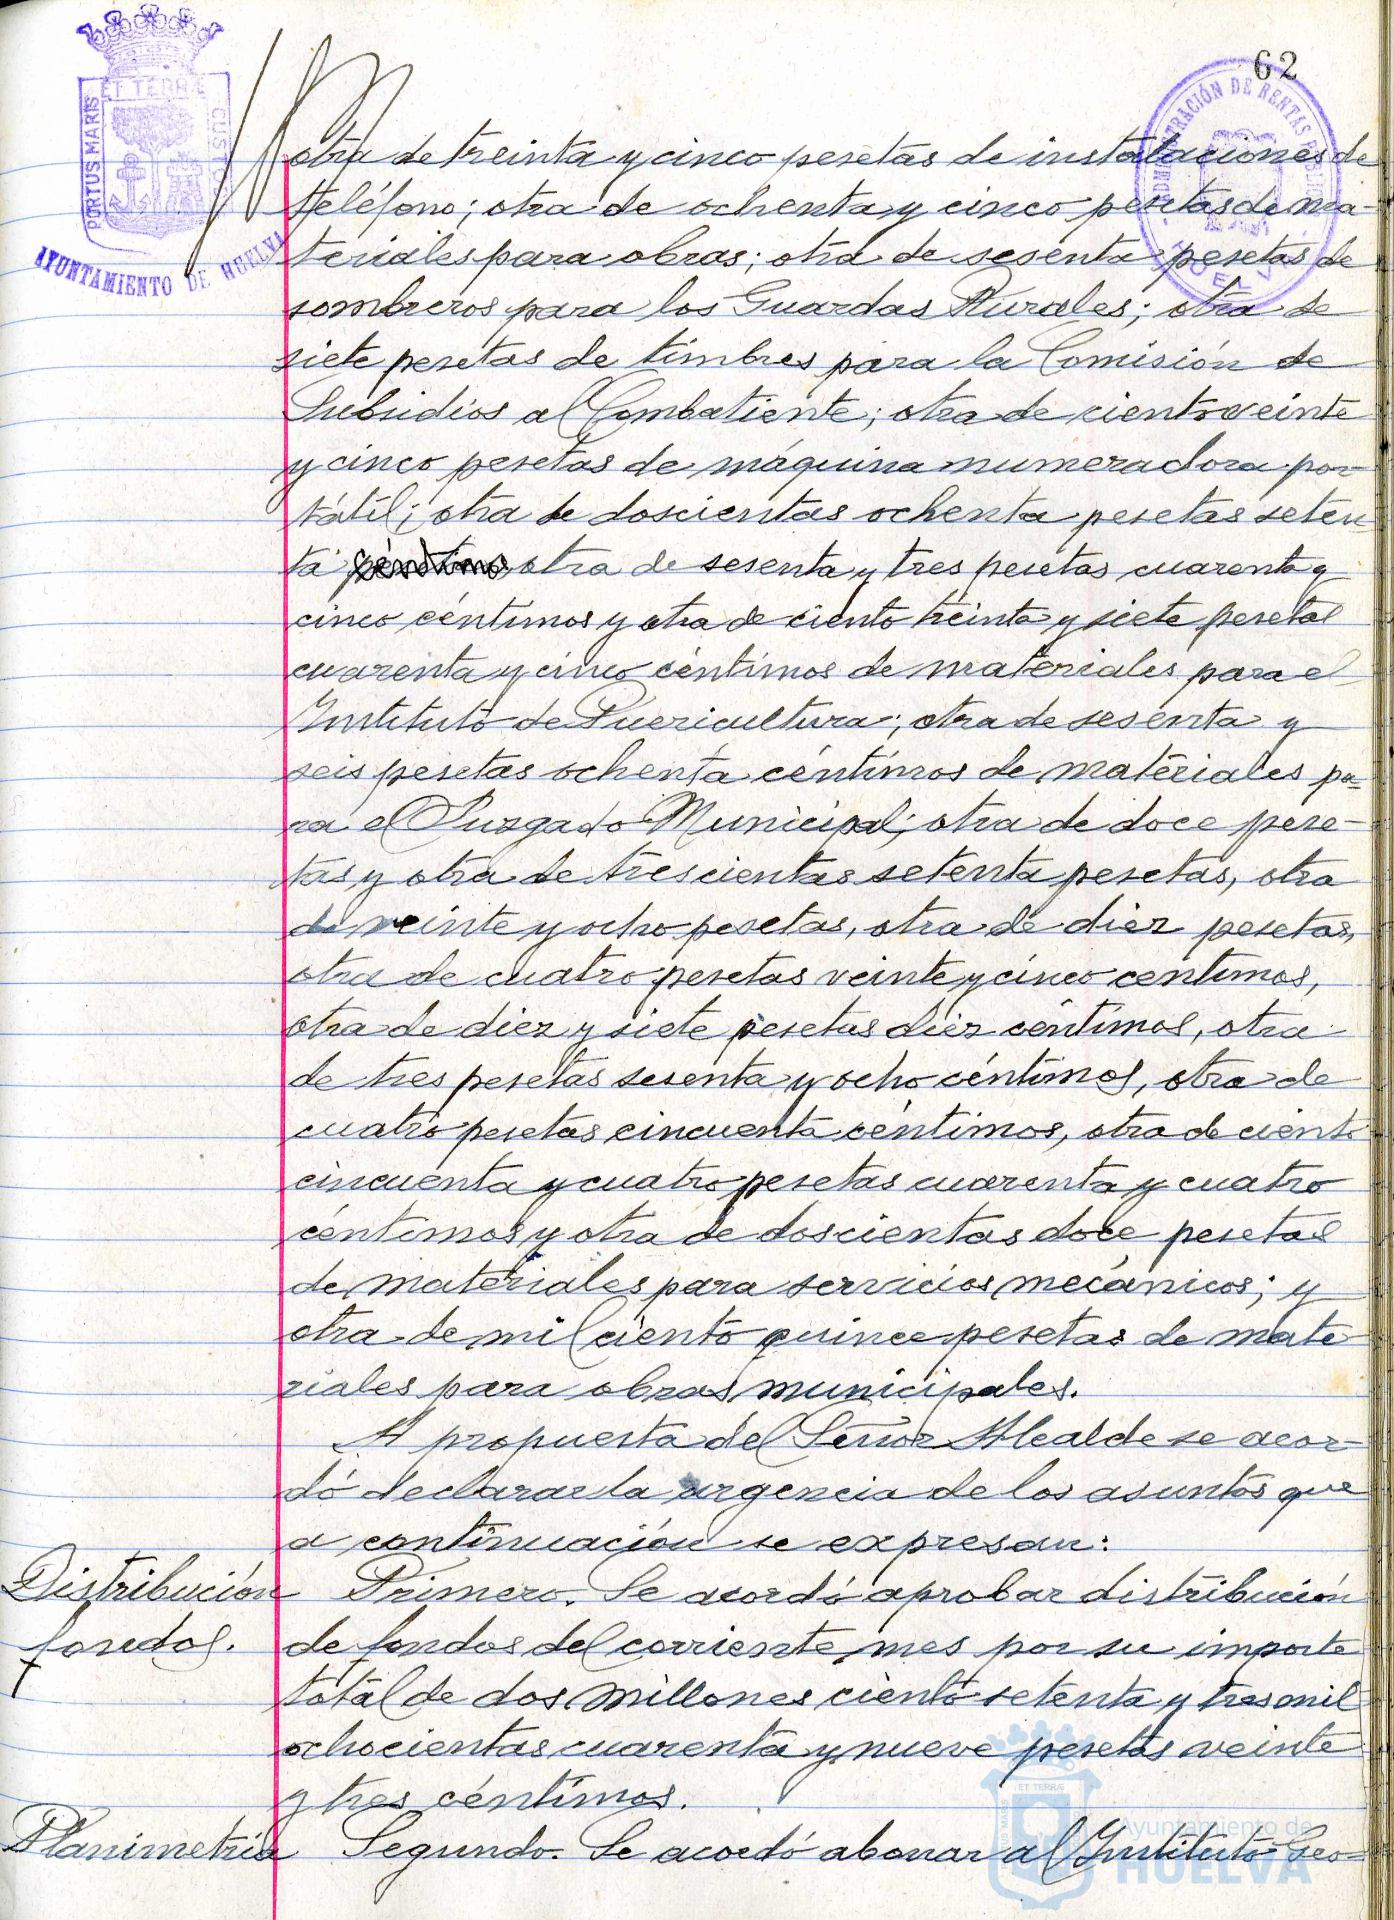 62
PORTUS MARIS ET TERRÆ CUSTOS
AYUNTAMIENTO DE HUELVA
ADMINISTRACIÓN DE RENTAS PUBLICAS
HUELVA
otra de treinta y cinco pesetas de instalaciones de
teléfono; otra de ochenta y cinco pesetas de ma-
teriales para obras; otra de sesenta pesetas de
sombreros para los Guardas Rurales; otra de
siete pesetas de timbres para la Comisión de
Subsidios al Combatiente; otra de ciento veinte
y cinco pesetas de máquina numeradora por-
tátil; otra de doscientas ochenta pesetas seten-
ta céntimos otra de sesenta y tres pesetas cuarenta y
cinco céntimos y otra de ciento treinta y siete pesetas
cuarenta y cinco céntimos de materiales para el
Instituto de Puericultura; otra de sesenta y
seis pesetas ochenta céntimos de materiales pa-
ra el Juzgado Municipal; otra de doce pese-
tas y otra de trescientas setenta pesetas, otra
de veinte y ocho pesetas, otra de diez pesetas,
otra de cuatro pesetas veinte y cinco centimos,
otra de diez y siete pesetas diez céntimos, otra
de tres pesetas sesenta y ocho céntimos, otra de
cuatro pesetas cincuenta céntimos, otra de ciento
cincuenta y cuatro pesetas cuarenta y cuatro
céntimos y otra de doscientas doce pesetas
de materiales para servicios mecánicos; y
otra de mil ciento quince pesetas de mate-
riales para obras municipales.
A propuesta del Señor Alcalde se acor-
dó declarar la urgencia de los asuntos que
a continuación se expresan:
Distribución Primero. Se acordó aprobar distribución
fondos. de fondos del corriente mes por su importe
total de dos millones ciento setenta y tres mil
ochocientas cuarenta y nueve pesetas veinte
y tres céntimos.
Planimetría Segundo. Se acordó abonar al Instituto Geo-
Ayuntamiento de
HUELVA